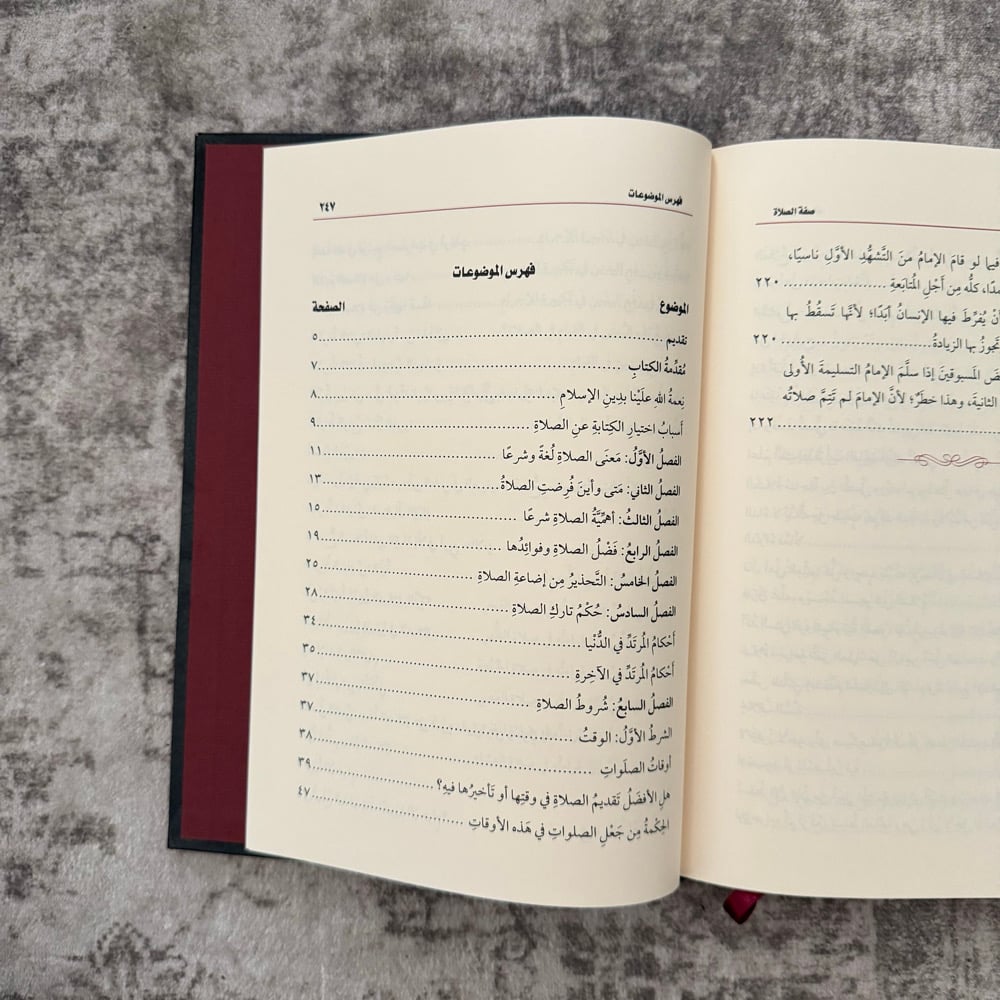 صفة الصلاة
فيما لو قامَ الإمامُ منَ التَّشهُّدِ الأوَّلِ ناسيًا،
كلُّه مِن أَجْلِ المُتابَعةِ ........ ٢٢٠
أنْ يُفرِّطَ فيها الإنسانُ أبدًا؛ لأنَّها تَسقُطُ بها
تَجوزُ بها الزيادةُ ........ ٢٢٠
المَسبوقينَ إذا سلَّمَ الإمامُ التسليمةَ الأُولى
الثانيةَ، وهذا خطَرٌ؛ لأنَّ الإمامَ لم تَتِمَّ صلاتُه
........ ٢٢٢
فهرس الموضوعات ٢٤٧
فهرس الموضوعات
الموضوع الصفحة
تقديم ........ ٥
مُقدِّمةُ الكتابِ ........ ٧
نِعمةُ اللهِ علَيْنا بدِينِ الإسلامِ ........ ٨
أسبابُ اختيارِ الكِتابةِ عنِ الصلاةِ ........ ٩
الفصلُ الأوَّلُ: مَعنَى الصلاةِ لُغةً وشرعًا ........ ١١
الفصلُ الثاني: مَتى وأينَ فُرِضتِ الصلاةُ ........ ١٣
الفصلُ الثالثُ: أهمِّيَّةُ الصلاةِ شرعًا ........ ١٥
الفصلُ الرابعُ: فَضْلُ الصلاةِ وفوائِدُها ........ ١٩
الفصلُ الخامسُ: التَّحذيرُ مِن إضاعةِ الصلاةِ ........ ٢٥
الفصلُ السادسُ: حُكْمُ تاركِ الصلاةِ ........ ٢٨
أَحْكامُ المُرتَدِّ في الدُّنْيا ........ ٣٤
أَحْكامُ المُرتَدِّ في الآخِرةِ ........ ٣٥
الفصلُ السابعُ: شُروطُ الصلاةِ ........ ٣٧
الشرطُ الأوَّلُ: الوقتُ ........ ٣٧
أوقاتُ الصلَواتِ ........ ٣٨
هلِ الأفضَلُ تَقديمُ الصلاةِ في وقتِها أو تَأخيرُها فيهِ؟ ........ ٣٩
الحِكْمةُ مِن جَعْلِ الصلواتِ في هَذه الأوقاتِ ........ ٤٧